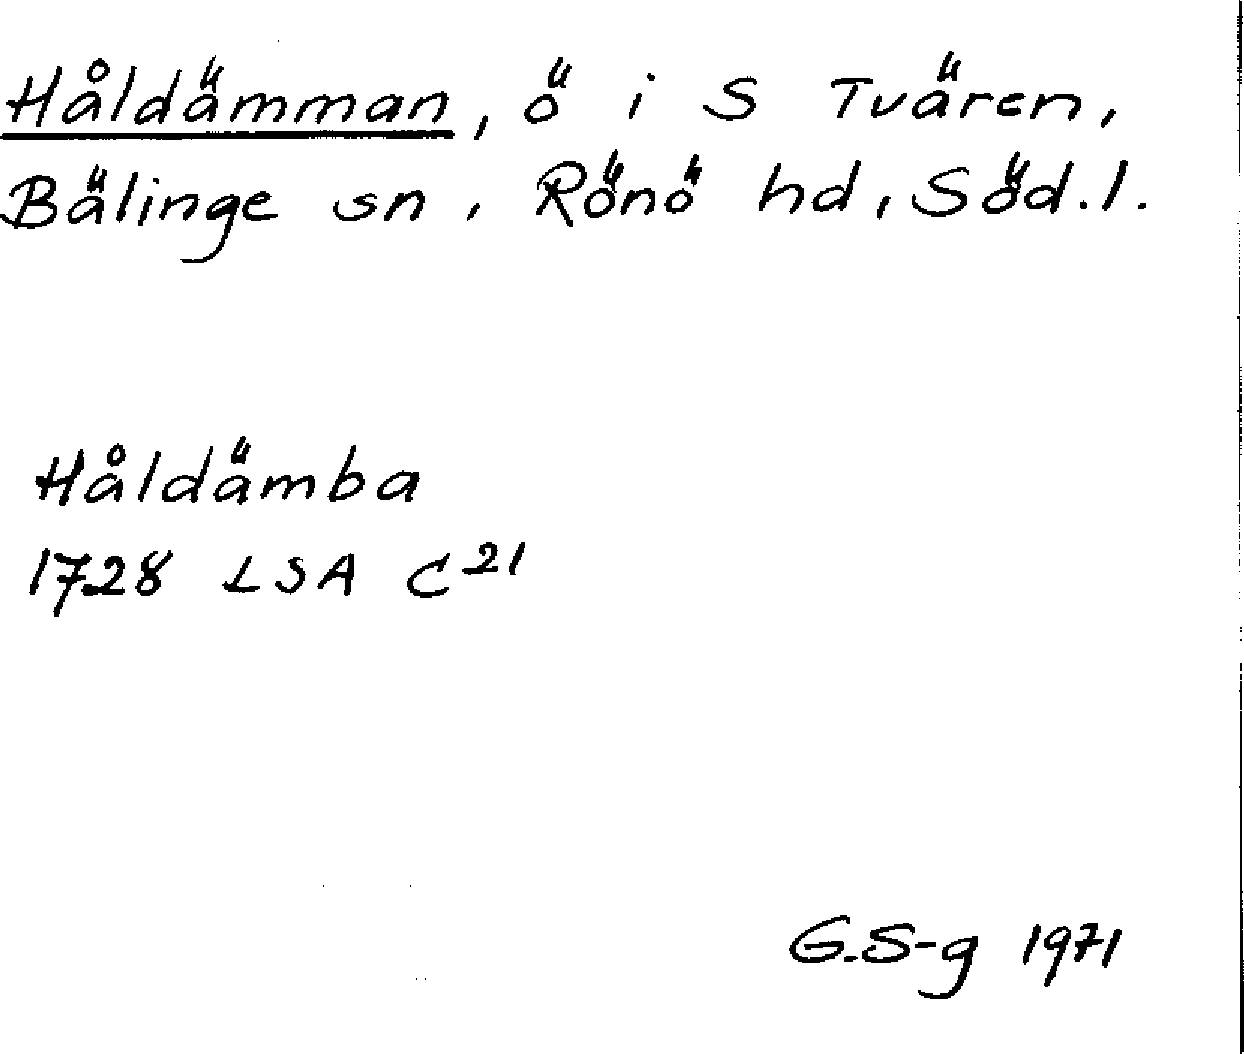 Håldämman, ö i S Tvären,
Bälinge sn, Rönö hd, Söd.l.
Håldämba
1728 LSA C²¹
G.S-g 1971